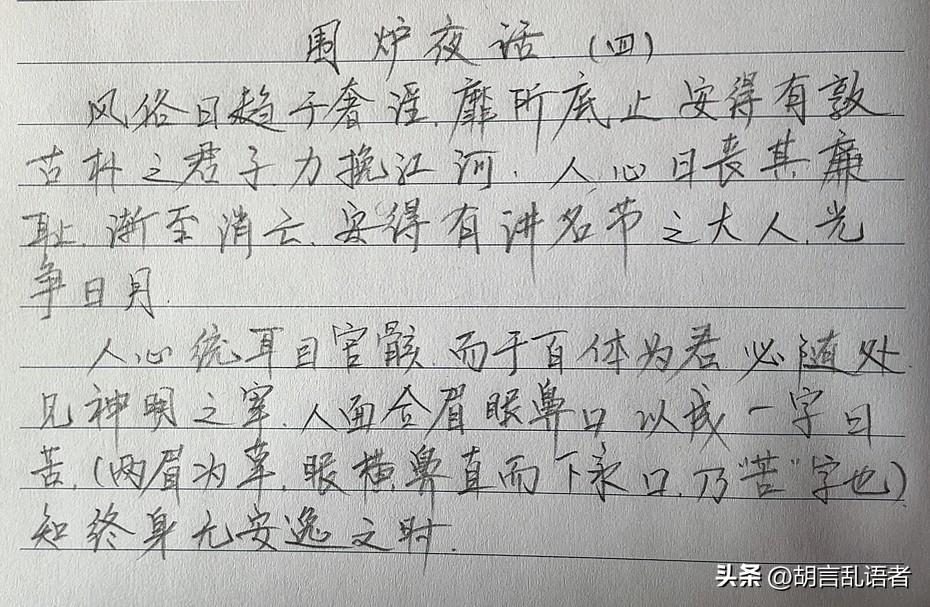 围炉夜话.(四)
风俗日趋于奢淫,靡所底止安得有敦
古朴之君子,力挽江河.人心日丧其廉
耻,渐至消亡,安得有讲名节之大人,光
争日月.
人心统耳目官骸,而于百体为君必随处
见神明之宰,人面合眉眼鼻口以成一字曰
苦,(两眉为草,眼横鼻直而下承口,乃“苦”字也)
知终身无安逸之时.
头条 @胡言乱语者